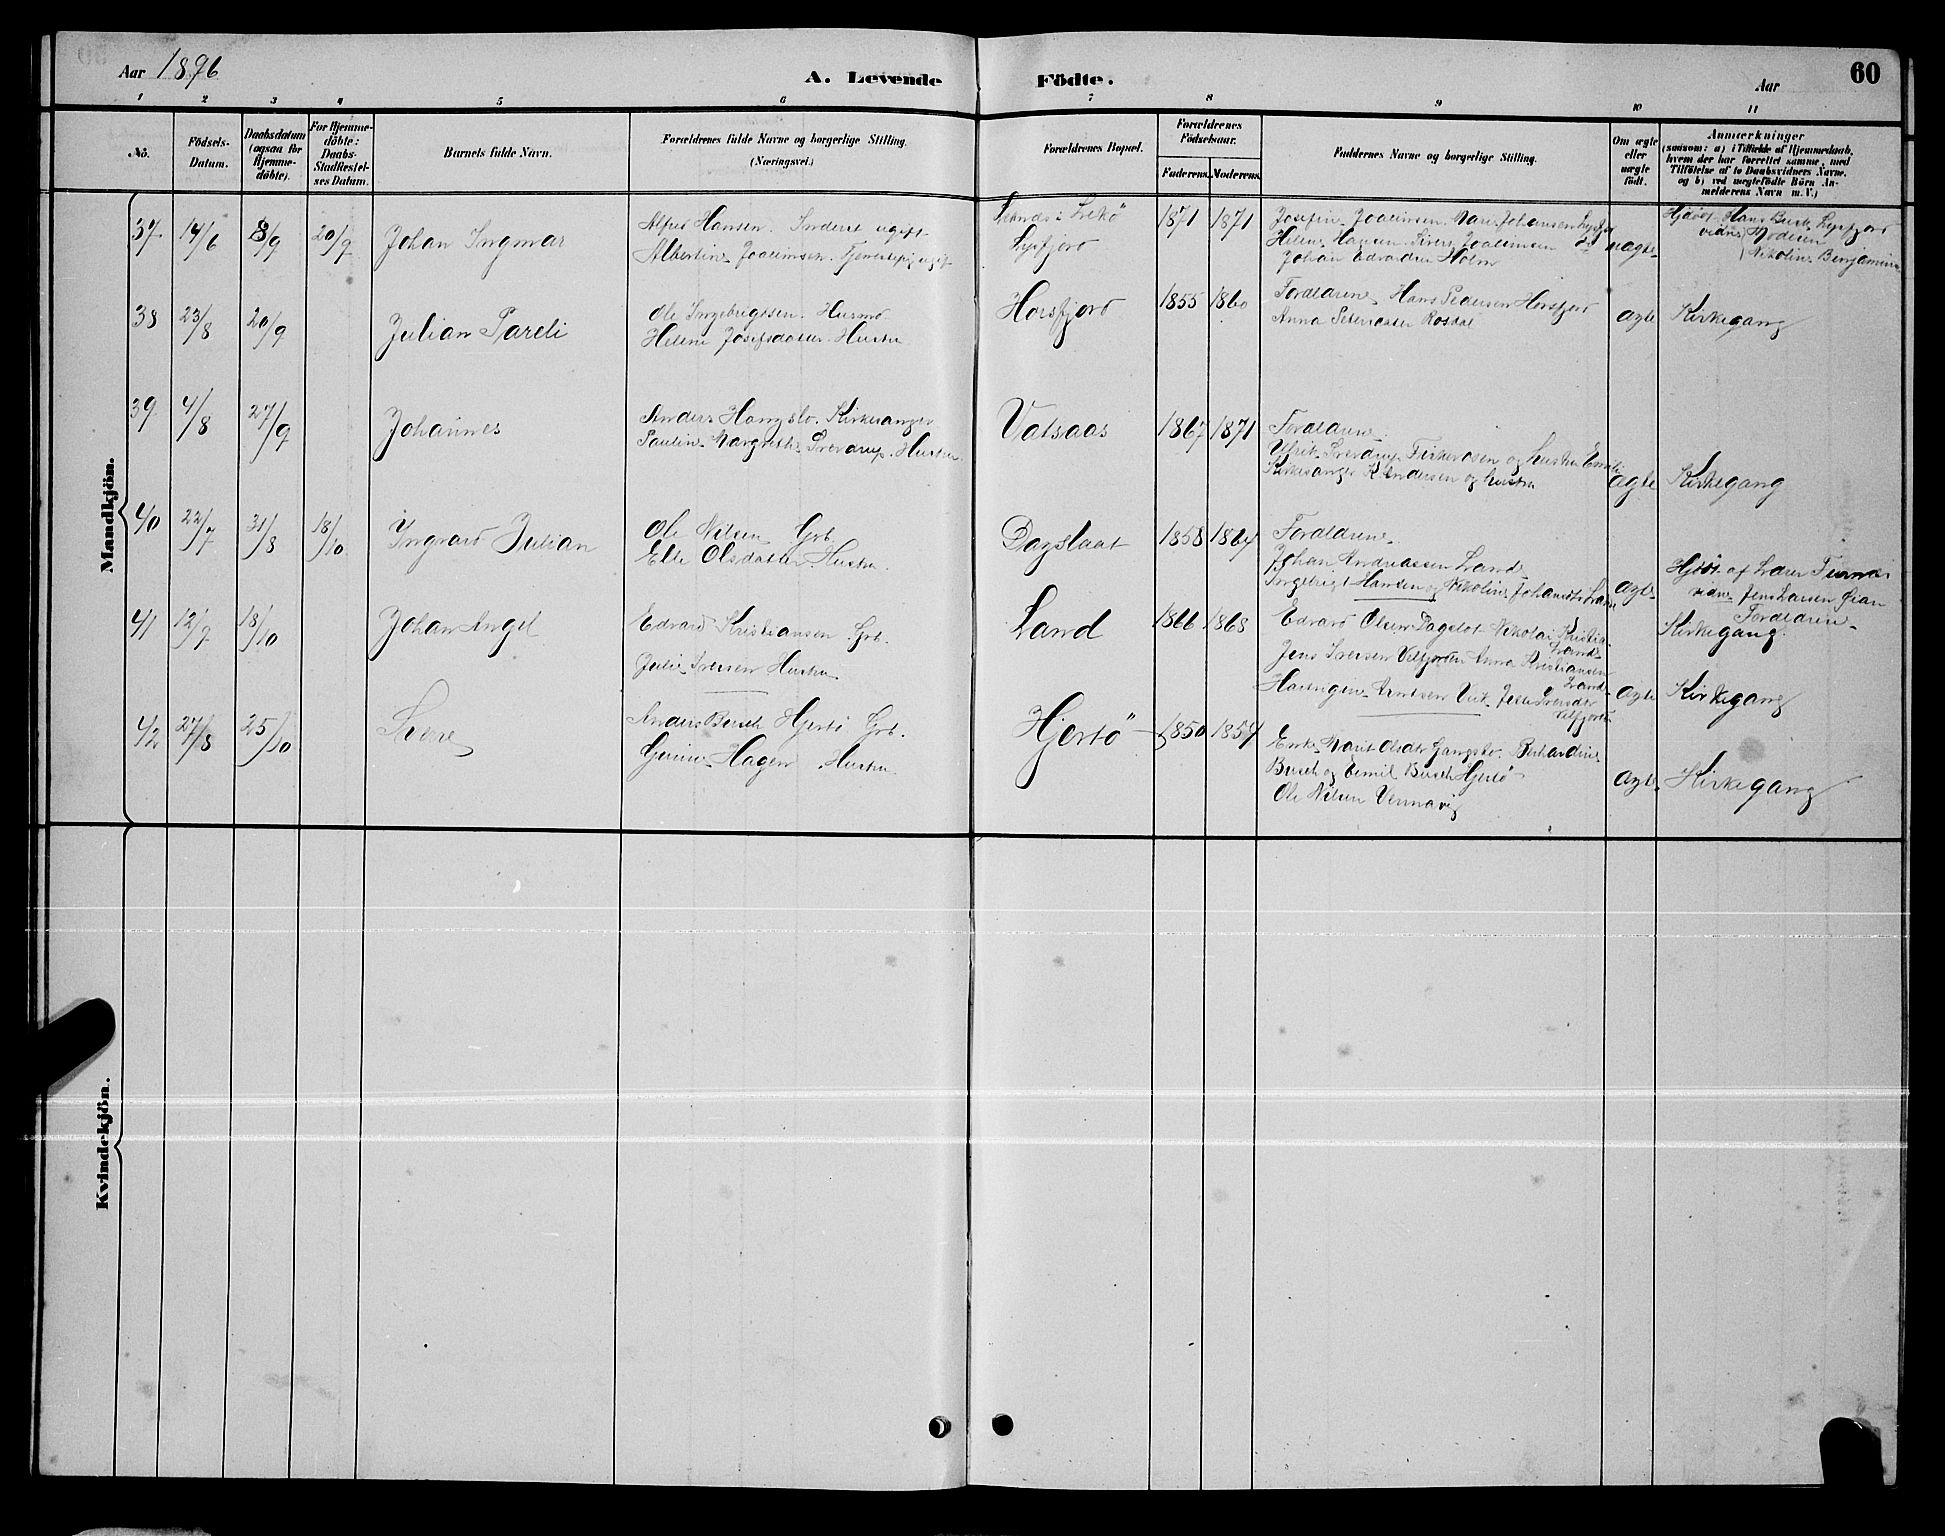 Aar 1896
A. Levende Födte.
Aar
60
1 2 3 4 5 6 7 8 9 10 11
No.
Födsels-Datum.
Daabsdatum (ogsaa for Hjemme-döbte).
For Hjemme-döbte: Daabs-Stadfæstel-ses Datum.
Barnets fulde Navn.
Forældrenes fulde Navne og borgerlige Stilling. (Næringsvei.)
Forældrenes Bopæl.
Forældrenes Födselsaar.
Faderens. Moderens.
Faddernes Navne og borgerlige Stilling.
Om ægte eller uægte födt.
Anmærkninger
(saasom: a) i Tilfælde af Hjemmedaab, hvem der har forrettet samme, med Tilföielse af to Daabsvidners Navne, og b) ved uægtefödte Börn An-melderens Navn m. V.)
Mandkjön.
37 14/6 8/9 20/9 Johan Ingmar
Alfred Hansen. Inderst ugift
Albertine Joakimsen. Tjenestepig ugift
Lysfjord
1871 1871
Josefine Joakimsen. Johansen Lysfjord
Helene Hansen. Sivert Joakimsen do
Johan Edvardsen Holm
uægte
Hjdöbt Hans Busk Lysfjord
vidne Moderen
Nikoline Benjamins
38 23/8 20/9 Julian Pareli
Ole Ingebrigtsen. Husmd
Helene Josefsdatter. Hustru
Horsfjord
1855 1860
Forældrene Hans Pedersen Horsfjord
Anna Petersdatter Rosdal
ægte
Kirkegang
39 4/8 27/9 Johannes
Anders Hongslo. Kirkesanger
Pauline Margrethe Sverdrup. Hustru
Vatsaas
1867 1871
Forældrene
Ulrik Sverdrup og hustru
Kirkesanger K Andersen og hustru
ægte
Kirkegang
40 22/7 31/8 18/10 Ingvard Julian
Ole Nilsen Grb.
Elle Olsdatter Hustru.
Dagslaat
1858 1864
Forældrene
Johan Andreassen Land
Ingebrigt Hansen og Nikoline Johansdtr Land
ægte
Hjdöbt af Lærer
vidne Jens Larsen Öian
Forældrene
41 12/9 18/10 Johan Angel
Edvard Kristiansen Grb.
Julie Iversen Hustru
Land
1866 1868
Edvard Olsen Dagslot Nikolai Kristia
Land
Jens Iversen Velfjorden Anna Kristiansen
Land
Arntsen Vik Iversdtr
Velfjorden
ægte
Kirkegang.
Kirkegang
42 27/8 25/10 Sverre
Anders Busch Hjertö Grb.
Hagen Hustru
Hjortö
1850 1854
Enke Marit Olsdtr Gangsto. Berhardine
Busch og Emil Busch Hjertö
Ole Nilsen Vennavig
ægte
Kirkegang
Kvindekjön.